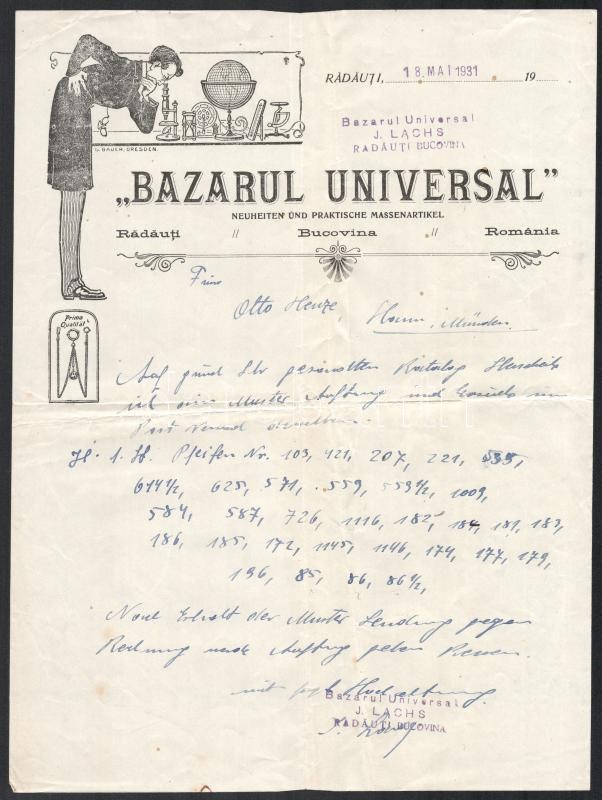 RĂDĂUȚI, 18. MAI 1931 19
Bazarul Universal
J. LACHS
RADĂUȚI BUCOVINA
G. BAUER, DRESDEN.
„BAZARUL UNIVERSAL”
NEUHEITEN UND PRAKTISCHE MASSENARTIKEL
Rădăuți // Bucovina // România
Prima
Qualität
Otto Henze, Hann. Münden.
Auf grund Ihr gesandten Katalog
ich ein Muster Auftrag und
Post
1 St. Pfeifen Nr. 103, 121, 207, 221, 535,
614 1/2, 625, 571, 559, 559 1/2, 1009,
584, 587, 726, 1116, 182, 184, 181, 183,
186, 185, 172, 1145, 1146, 174, 177, 179,
196, 85, 86, 86 1/2,
Erhalt der Muster Sendung gegen
Rechnung Auftrag
mit Hochachtung.
Bazarul Universal
J. LACHS
RADĂUȚI BUCOVINA